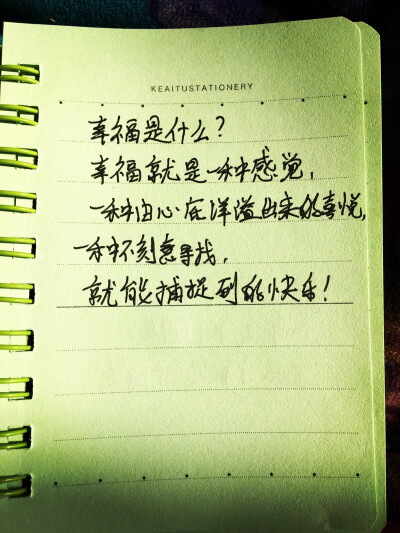 KEAITUSTATIONERY
幸福是什么？
幸福就是一种感觉，
一种由心底洋溢出来的喜悦，
一种不刻意寻找，
就能捕捉到的快乐！